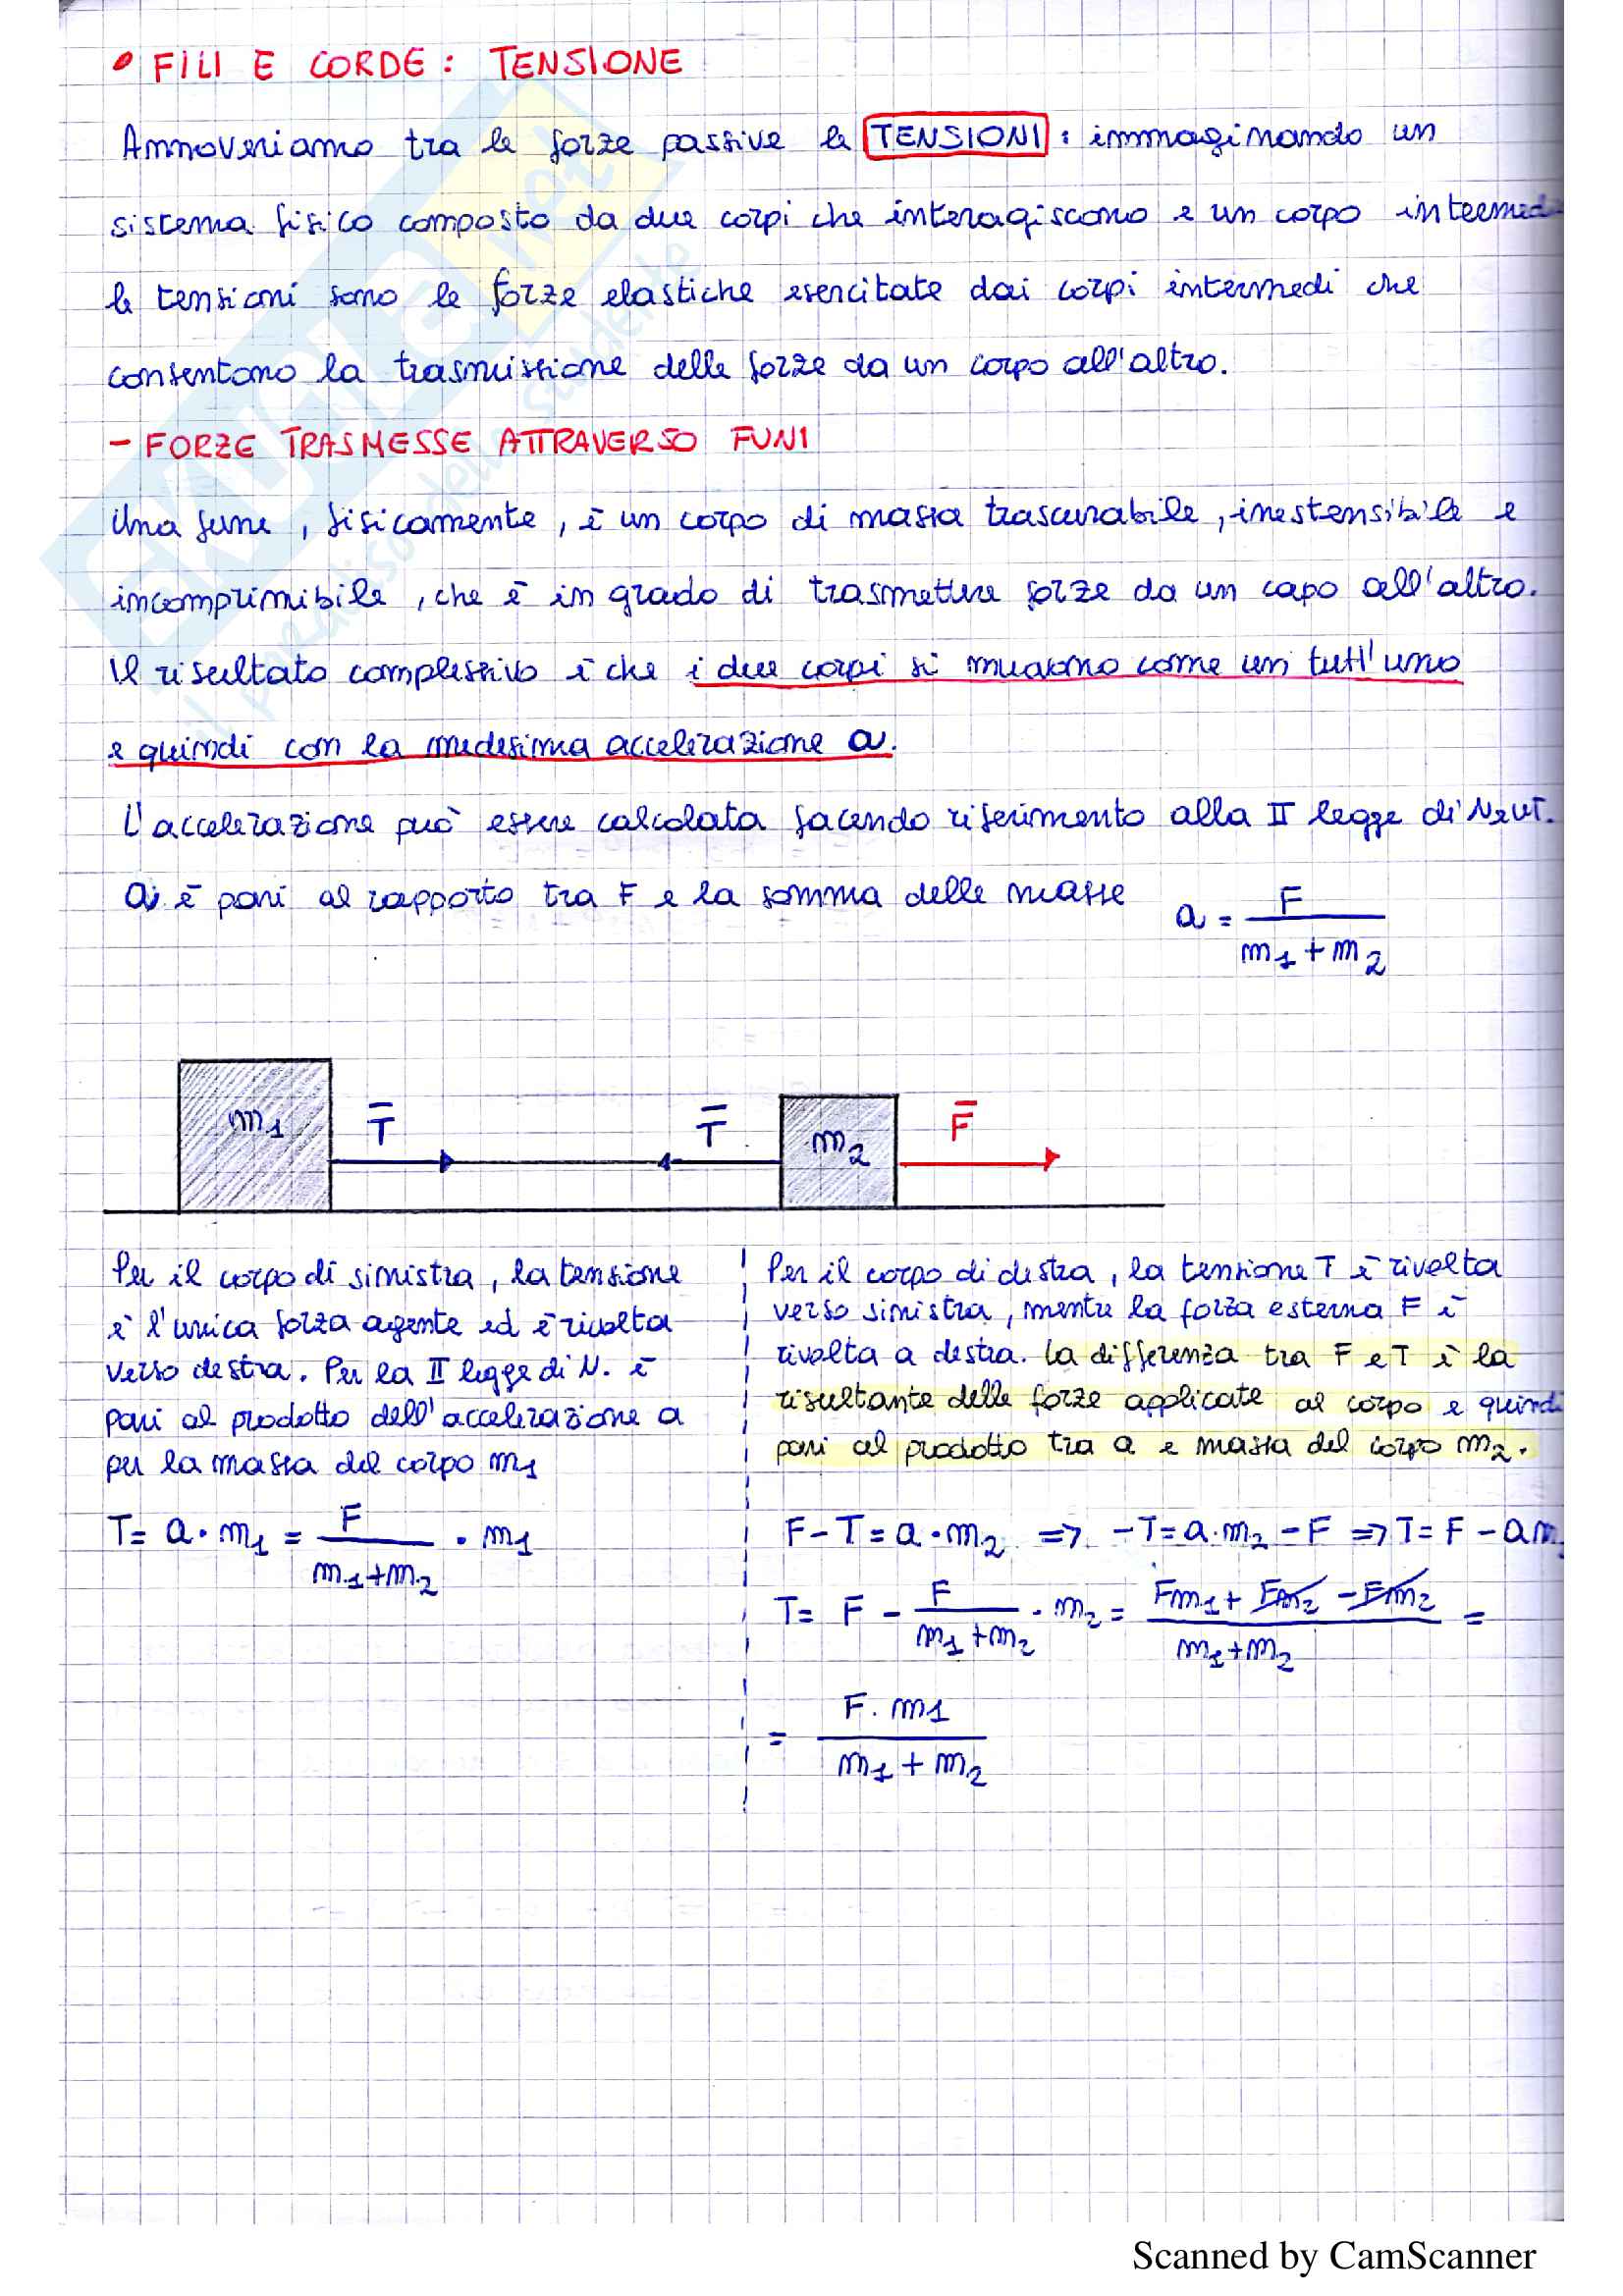 • FILI E CORDE: TENSIONE
Annoveriamo tra le forze passive le TENSIONI: immaginando un
sistema fisico composto da due corpi che interagiscono e un corpo intermed
le tensioni sono le forze elastiche esercitate dai corpi intermedi che
consentono la trasmissione delle forze da un corpo all'altro.
- FORZE TRASMESSE ATTRAVERSO FUNI
Una fune, fisicamente, è un corpo di massa trascurabile, inestensibile e
incomprimibile, che è in grado di trasmettere forze da un capo all'altro.
Il risultato complessivo è che i due corpi si muovono come un tutt'uno
e quindi con la medesima accelerazione a.
L'accelerazione può essere calcolata facendo riferimento alla II legge di Newt.
a è pari al rapporto tra F e la somma delle masse a = F / (m1 + m2)
m1 T̄ T̄ m2 F̄
Per il corpo di sinistra, la tensione
è l'unica forza agente ed è rivolta
verso destra. Per la II legge di N. è
pari al prodotto dell'accelerazione a
per la massa del corpo m1
T = a · m1 = F / (m1+m2) · m1
Per il corpo di destra, la tensione T è rivolta
verso sinistra, mentre la forza esterna F è
rivolta a destra. la differenza tra F e T è la
risultante delle forze applicate al corpo e quindi
pari al prodotto tra a e massa del corpo m2.
F - T = a · m2 => -T = a · m2 - F => T = F - am
T = F - F / (m1+m2) · m2 = (Fm1 + Fm2 - Fm2) / (m1+m2) =
= F · m1 / (m1 + m2)
SKUOLA.net
il paradiso dello studente
Scanned by CamScanner